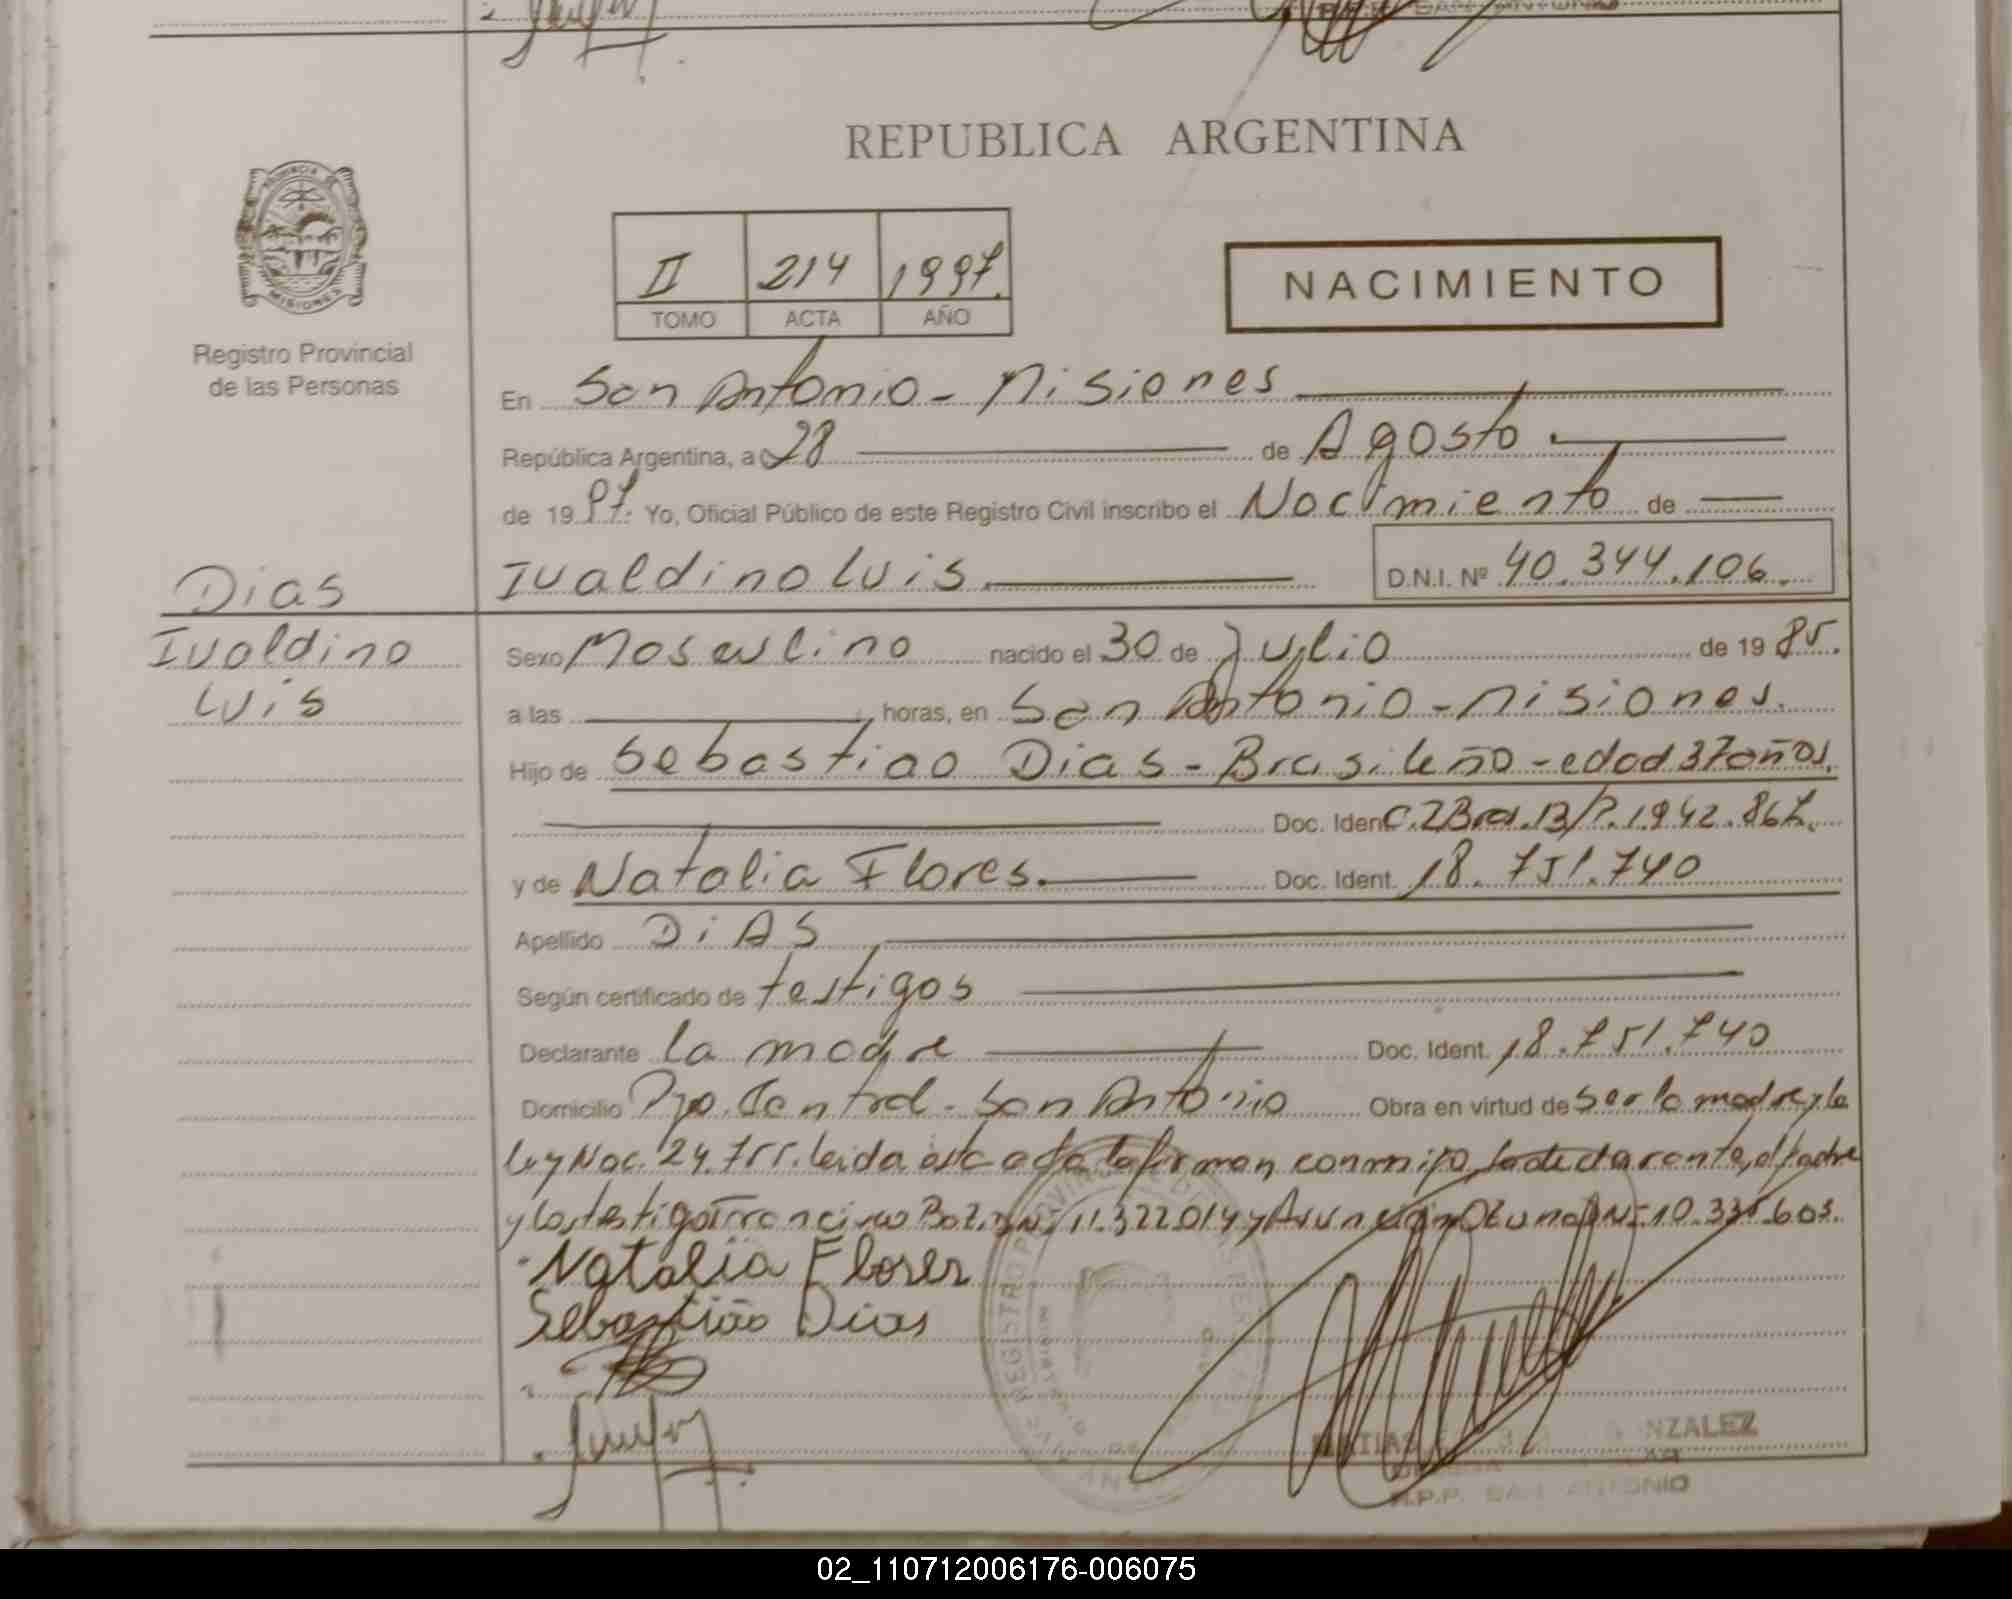 REPUBLICA ARGENTINA
PROVINCIA DE
MISIONES
Registro Provincial
de las Personas
II 214 1997.
TOMO ACTA AÑO
NACIMIENTO
En San Antonio - Misiones
República Argentina, a 28 de Agosto
de 1997. Yo, Oficial Público de este Registro Civil inscribo el Nacimiento de
Ivaldino Luis. D.N.I. Nº 40.344.106.
Dias
Ivaldino
Luis
Sexo Masculino nacido el 30 de Julio de 1985.
a las horas, en San Antonio - Misiones.
Hijo de Sebastiao Dias - Brasileño - edad 37 años.
Doc. Ident. 1.942.867.
y de Natalia Flores. Doc. Ident. 18.751.740
Apellido DiAS
Según certificado de testigos
Declarante La madre Doc. Ident. 18.751.740
Domicilio Central - San Antonio Obra en virtud de ser la madre y la
Ley Nac. 24.755. leida esta acta la firman conmigo, la declarante, el padre
y los testigos Francisco 11.322.014 y Asunción 10.335.603.
Natalia Flores
Sebastião Dias
REGISTRO PROVINCIAL DE LAS PER
NZALEZ
R.P.P. SAN ANTONIO
02_110712006176-006075